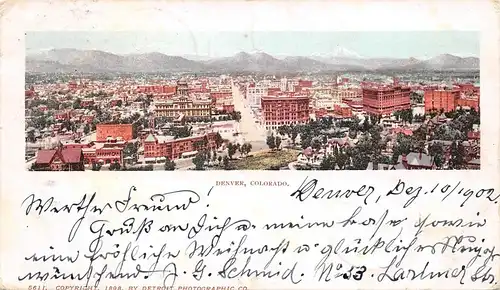 DENVER, COLORADO.
Denver, Dez. 10/1902.
Werther Freund!
Gruß an Dich u. meine base sowie
eine fröhliche Weihnacht u. glückliches Neujahr
wünschend. J. G. Schmid, No 53
5611. COPYRIGHT, 1898, BY DETROIT PHOTOGRAPHIC CO.